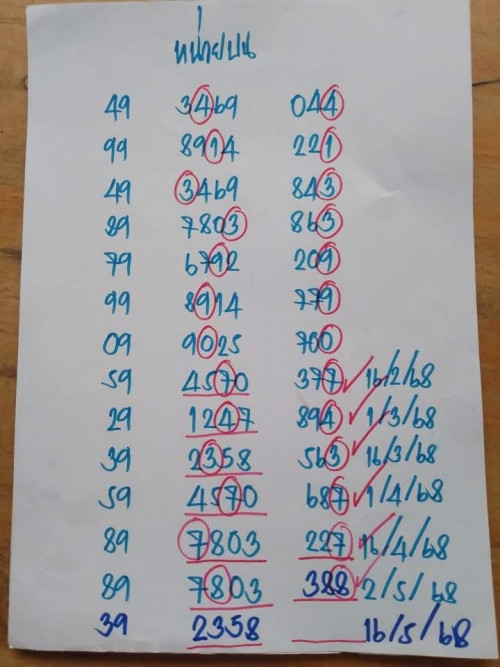 หน่วยบน
49 3469 044
99 8914 221
49 3469 843
29 7803 863
79 6792 209
99 8914 779
09 9025 700
59 4570 377 16/2/68
29 1247 894 1/3/68
39 2358 563 16/3/68
59 4570 687 1/4/68
89 7803 227 16/4/68
89 7803 388 2/5/68
39 2358 16/5/68